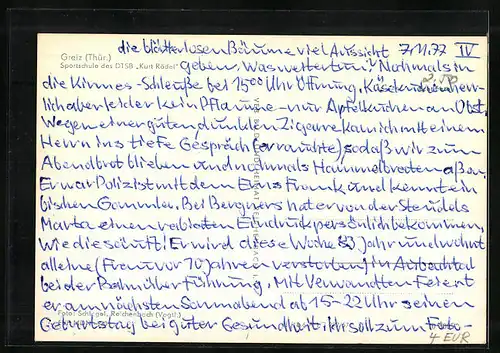 die blätterlosen Bäume viel Aussicht 7.11.77 IV
Greiz (Thür.)
Sportschule des DTSB „Kurt Rödel"
geben. Was weiter tun? Nochmals in
die Kirmes-Schleuße bei 15⁰⁰ Uhr Öffnung. Käsekuchen herr-
lich aber leider kein Pflaume - nur Apfelkuchen an Obst.
Wegen einer guten dunklen Zigarre kam ich mit einem
Herrn ins tiefe Gespräch (er rauchte) sodaß wir zum
Abendbrot blieben und nochmals Hammelbraten aßen.
Er war Polizist mit dem Erns Frank und kennt ein
bischen Gommla. Bei Bergners hat er von der Steudels
Marta einen rabiaten Eindruck persönlich bekommen,
wie die säuft! Er wird diese Woche 83 Jahr und wohnt
alleine (Frau vor 10 Jahren verstorben) in Aubachtal
bei der Bahnüber Führung. Mit Verwandten feiert
er am nächsten Sonnabend ab 15-22 Uhr seinen
Foto: Schlegel, Reichenbach (Vogtl.)
Geburtstag bei guter Gesundheit. ich soll zum Foto-
4 EUR